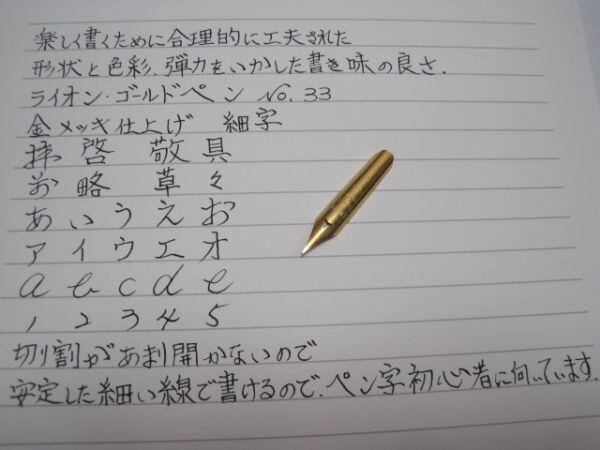 楽しく書くために合理的に工夫された
形状と色彩、弾力をいかした書き味の良さ.
ライオン・ゴールドペン No. 33
金メッキ仕上げ 細字
拝啓 敬具
前略 草々
あいうえお
アイウエオ
a b c d e
1 2 3 4 5
切り割があまり開かないので
安定した細い線で書けるので、ペン字初心者に向いています.